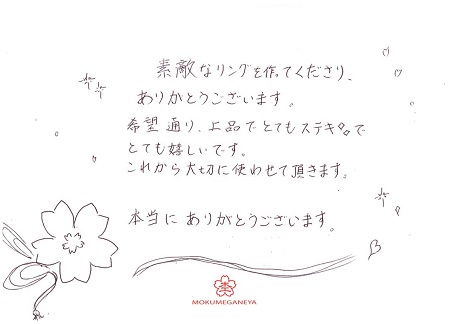 素敵なリングを作ってくださり、
ありがとうございます。
希望通り、上品でとてもステキで
とても嬉しいです。
これから大切に使わせて頂きます。
本当に ありがとうございます。
MOKUMEGANEYA